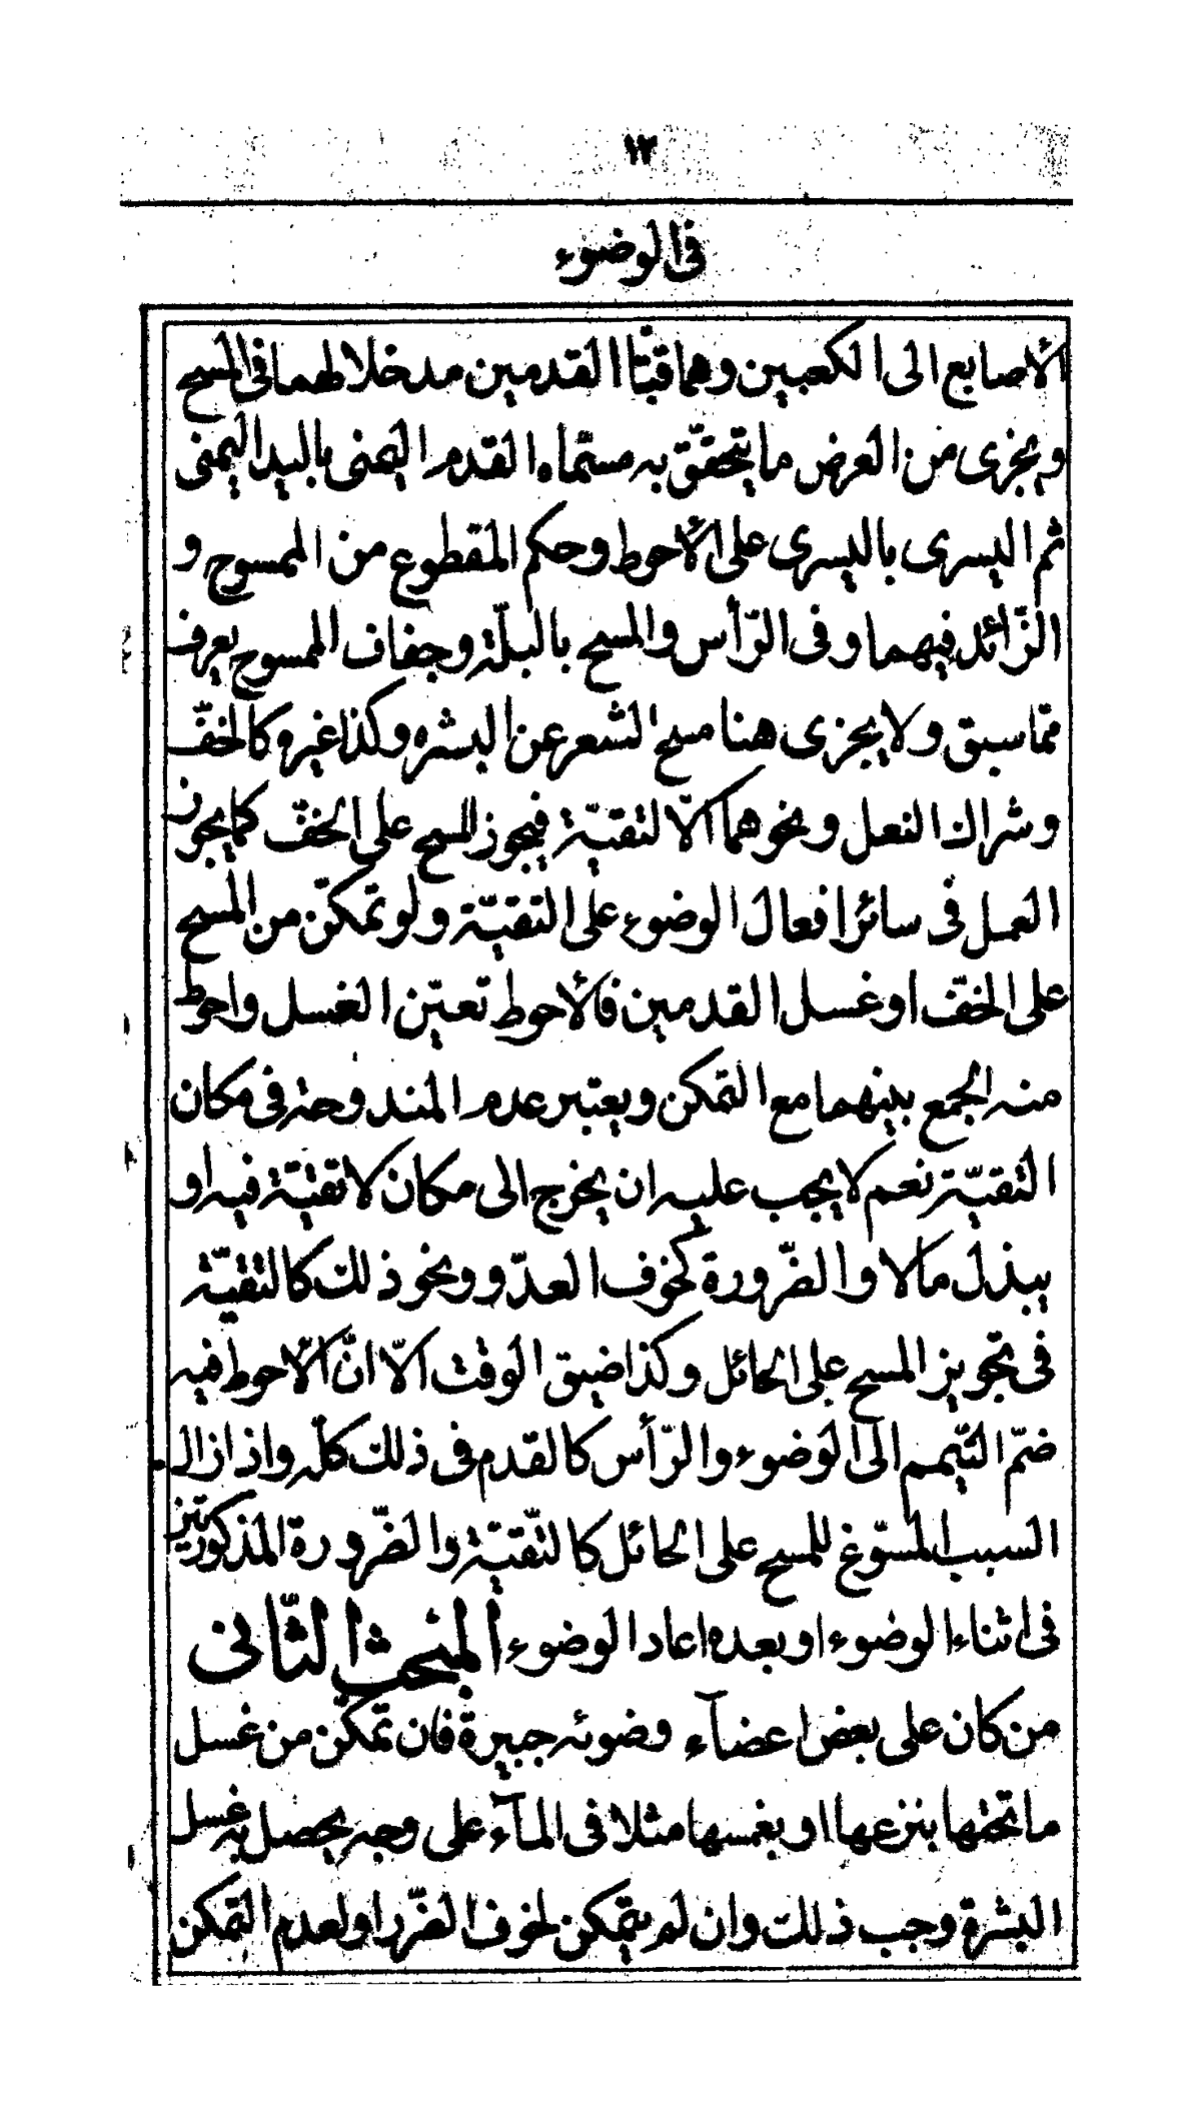 ١٢
فى الوضوء
الأصابع الى الكعبين وهما قبّتا القدمين مدخلا لهما فى المسح
ويجزى من العرض ما يتحقّق به مسمّاه القدم اليمنى باليد اليمنى
ثم اليسرى باليسرى على الأحوط وحكم المقطوع من الممسوح و
الزّائد فيهما وفى الرّأس والمسح بالبلّة وجفاف الممسوح يعرف
ممّا سبق ولا يجزى هنا مسح الشعر عن البشره وكذا غيره كالخفّ
وشراك النعل ونحوهما الّا لتقيّة فيجوز المسح على الخفّ كما يجوز
العمل فى سائر افعال الوضوء على التقيّة ولو تمكّن من المسح
على الخفّ او غسل القدمين فالأحوط تعيّن الغسل واحوط
منه الجمع بينهما مع التمكن ويعتبر عدم المندوحة فى مكان
التقيّة نعم لا يجب عليه ان يخرج الى مكان لا تقيّة فيه او
يبذل مالا والضّرورة كخوف العدّو ونحو ذلك كالتقيّة
فى تجويز المسح على الحائل وكذا ضيق الوقت الّا انّ الأحوط فيه
ضمّ التيّمم الى الوضوء والرّأس كالقدم فى ذلك كلّه واذا زال
السبب المسّوغ للمسح على الحائل كالتّقيّة والضّرورة المذكورتين
فى اثناء الوضوء او بعده اعاد الوضوء المبحث الثّانى
من كان على بعض اعضآء وضوئه جبيرة فان تمكّن من غسل
ما تحتها بنزعها او بغمسها مثلا فى المآء على وجه يحصل به غسل
البشرة وجب ذلك وان لم يتمكن لخوف الضّرر او لعدم التمكن